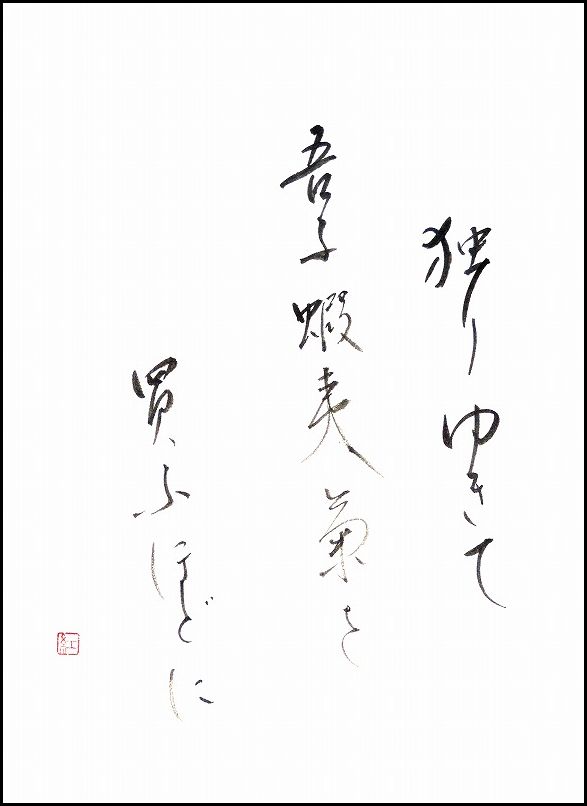 独りゆきて
吾子蝦夷菊を
買ふほどに